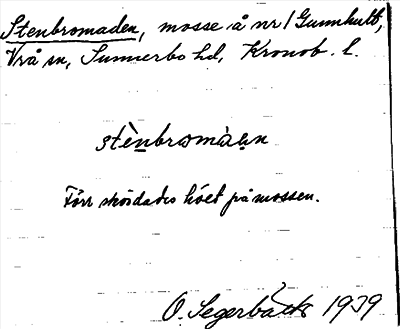 Stenbromaden, mosse å nr 1 Gunnhult,
Vrå sn, Sunnerbo hd, Kronob. l.
stènbromàən
Förr skördades höet på mossen.
O. Segerbäck 1939